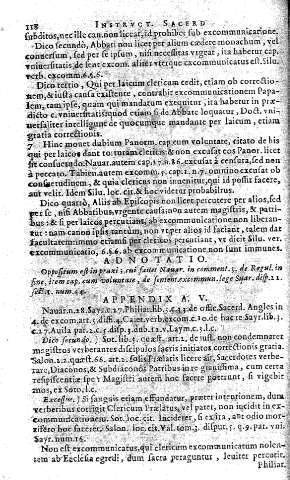 118 INSTRVCT. SACERD
subditos, nec ille can. non liceat, id prohibet sub excommunicatione.
Dico secundò, Abbati non licet per alium cædere monachum, vel
conuersum, sed per se ipsum, nisi necessitas vrgeat, ita habetur cap.
vniuersitatis, de sent. excom. aliter vterque excommunicatus est Siluv.
verb. excomm. 6. 5. 6.
Dico tertio, Qui per laicum clericum cedit, etiam ob correctio-
nem, & iusta causa existente, contrahit excommunicationem Papa-
lem, tam ipse, quam qui mandatum exequitur, ita habetur in præ-
dicto c. vniuersitatis quod etiam de Abbate loquatur, Doct. vni-
uersaliter intelligunt de quocumque mandante per laicum, etiam
gratia correctionis.
7 Hinc monet dabium Panorm. cap. cum voluntate, citato de his
qui per laicos dant torturam clericis; & non excusat eos Panor. licet
sit consuetudo Nauar. autem cap. 27. n. 86. excusat à censura, sed non
à peccato. Tabien. autem excom. 5. cap. 1. n. 7. omnino excusat ob
consuetudinem, & quia clericus non inuenitur, qui id possit facere,
aut velit. Idem Silu. loc. cit. & hoc videtur probabilius.
Dico quartò, Aliis ab Episcopis non licet percutere per alios, sed
per se, nisi Abbatibus vrgente causa; non autem magistris, & patri
bus: & si per laicos percutiant, ab excommunicatione non liberan-
tur: nam canon ipsis tantum, non vt per alios id faciant, talem dat
facultatem immo etiamsi per clericos percutiant, vt dicit Silu. ver.
excommunicatio, 6. §. 6. ab excommunicatione non sunt immunes.
ADNOTATIO.
Oppositum est in praxi; cui fauet Nauar. in comment. 3. de Regul. in
fine, item cap. cum voluntate, de sentent. excommun. lege Suar. disp. 22.
sect. 1. num. 44.
APPENDIX A. V.
Nauar. n. 28. Sayr. c. 27. Philiar. lib. 1. p. 1. l. 2. de offic. Sacerd. Angles in
4. de excom. art. 3. diffic. 4. Caiet. verb. excom. 10. de hac re Sayr. lib. 3.
c. 27. Auila par. 2. c. 5. disp. 3. dub. 12. v. Laym. c. 5. l. c.
Dico secundo.) Sot. lib. 5. quæst. art. 2. de iust. non condemnaret
magistros verberantes discipulos laicis initiatos correctionis gratia.
Salon. 1. 2. quæst. 65. art. 2. solis Prælatis licere ait, Sacerdotes verbe-
rare, Diaconos, & Subdiaconos Patribus in re grauissima, cum certa
respiscentiæ spe; Magistri autem hoc facere potuerint, si vigebit
mos, ex Soto l. c.
Excessus.) Si sanguis etiam effundatur, præter intentionem, dum
verberibus corrigit Clericum Prælatus, vel pater, non incidit in ex-
communicationem. Sot. loc. cit. Incideret, si ex ira, aut odio mor-
tifero hoc faceret. Salon. loc. cit. Val. tom. 3. disput. 5. q. 9. pat. vni.
Sayr. num. 15.
Non est excommunicatus, qui clericum excommunicatum nolen-
tem ab Ecclesia egredi, dum sacra peraguntur, leuiter percutit.
Philiar.